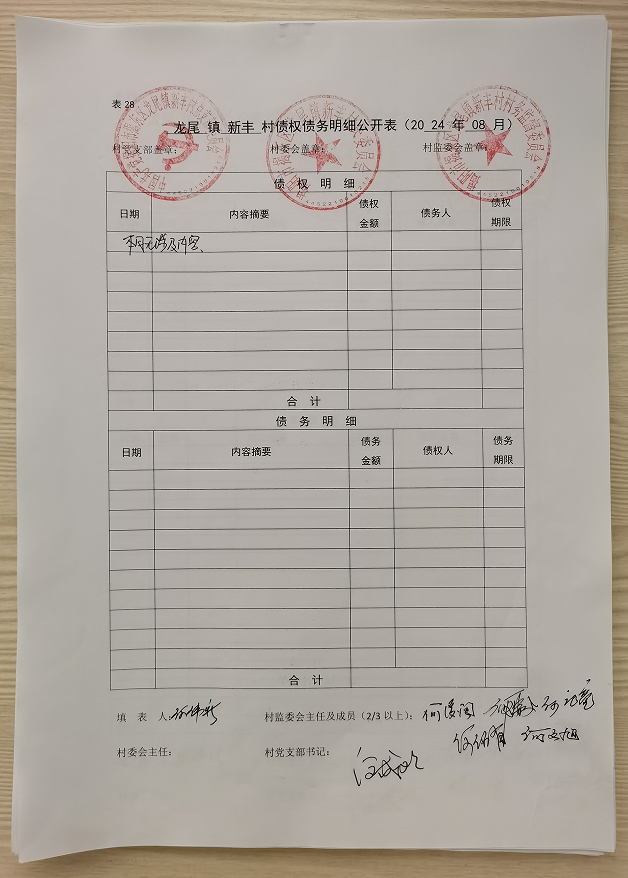 表 28
龙尾 镇 新丰 村债权债务明细公开表（20 24 年 08 月）
村党支部盖章： 村委会盖章： 村监委会盖章：
债 权 明 细
日期 内容摘要 债权金额 债务人 债权期限
本月无涉及内容
合 计
债 务 明 细
日期 内容摘要 债务金额 债权人 债务期限
合 计
填 表 人： 村监委会主任及成员（2/3 以上）：
村委会主任： 村党支部书记：